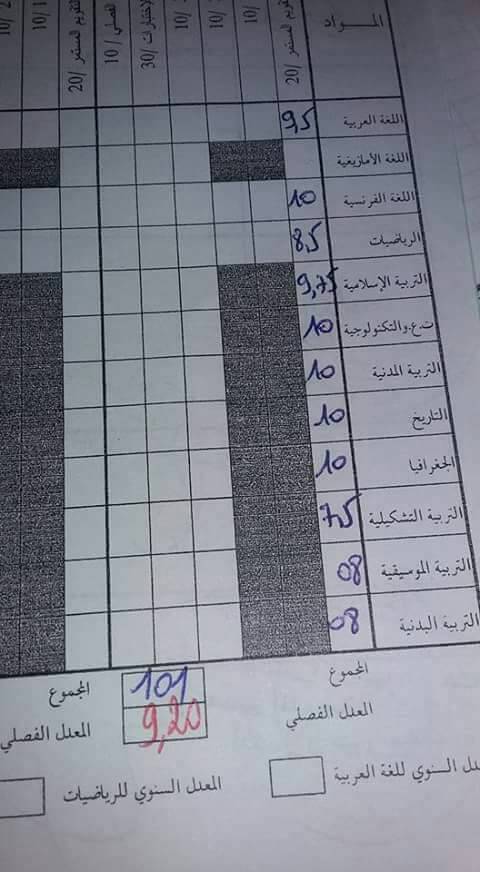 المـــواد التقويم المستمر /20 10/ 10/ 10/ الاختبارات /30 الفصلي /10 التقويم المستمر /20 10/ 10/
اللغة العربية 9,5
اللغة الأمازيغية
اللغة الفرنسية 10
الرياضيات 8,5
التربية الإسلامية 9,75
ت.ع.والتكنولوجية 10
التربية المدنية 10
التاريخ 10
الجغرافيا 10
التربية التشكيلية 7,5
التربية الموسيقية 08
التربية البدنية 08
المجموع 101 المجموع
المعدل الفصلي 9,20 المعدل الفصلي
السنوي للغة العربية المعدل السنوي للرياضيات